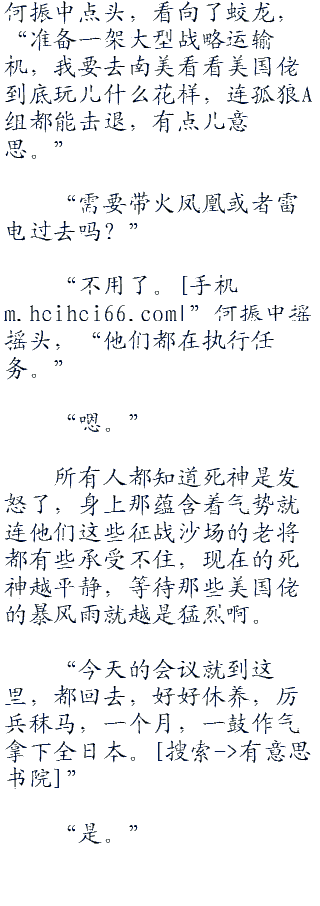 何振中点头，看向了蛟龙，
“准备一架大型战略运输
机，我要去南美看看美国佬
到底玩儿什么花样，连孤狼A
组都能击退，有点儿意
思。”
“需要带火凤凰或者雷
电过去吗？”
“不用了。[手机
m.hcihci66.com|”何振中摇
摇头，“他们都在执行任
务。”
“嗯。”
所有人都知道死神是发
怒了，身上那蕴含着气势就
连他们这些征战沙场的老将
都有些承受不住，现在的死
神越平静，等待那些美国佬
的暴风雨就越是猛烈啊。
“今天的会议就到这
里，都回去，好好休养，厉
兵秣马，一个月，一鼓作气
拿下全日本。[搜索->有意思
书院]”
“是。”